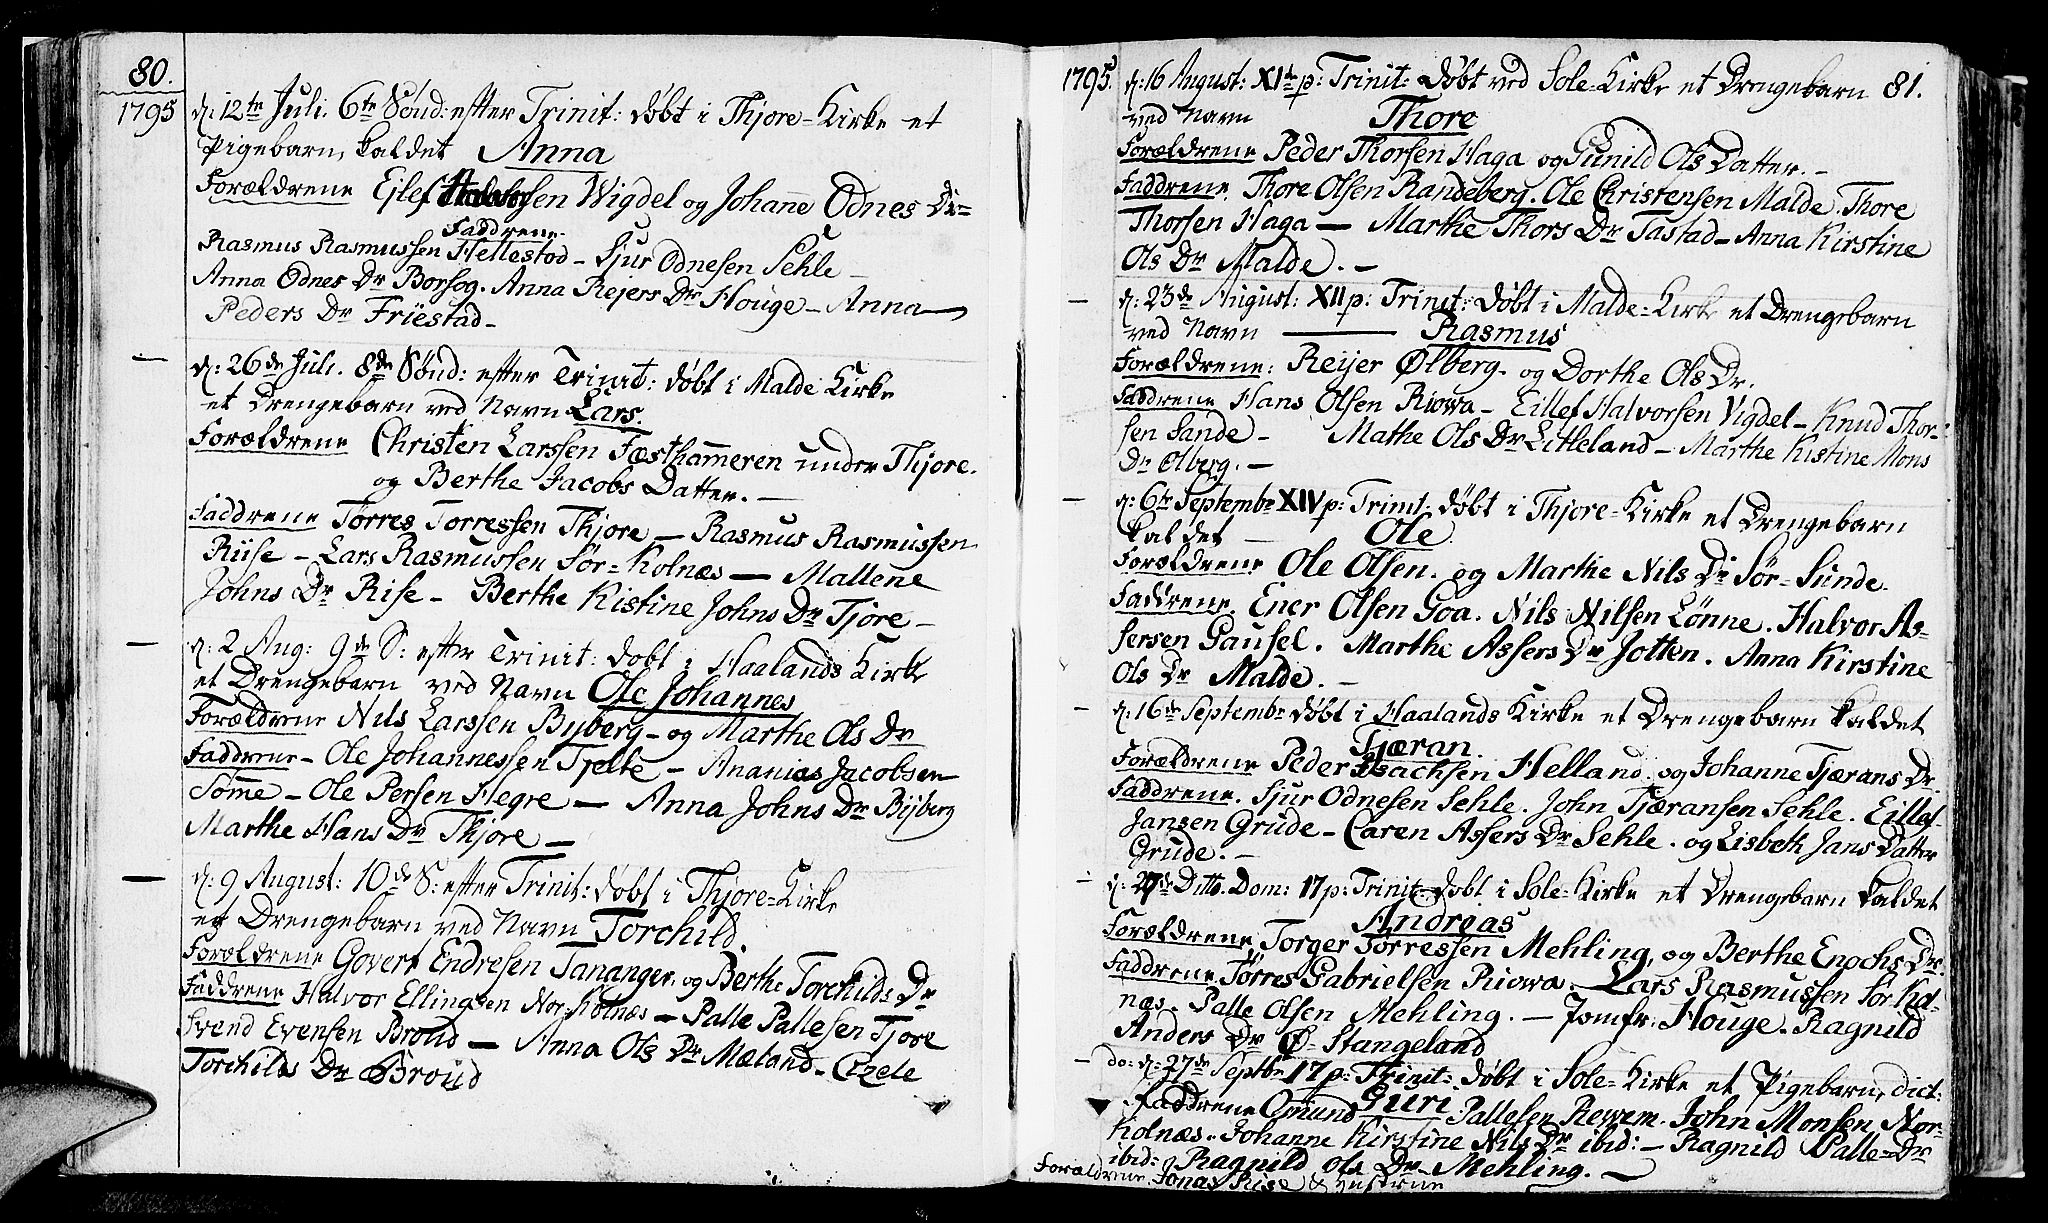 80.
1795 d: 12te Juli. 6te Sønd: efter Trinit: døbt i Thjore=Kirke et
Pigebarn, kaldet Anna
Forældrene Ejlef Halvorsen Wigdel og Johanne Odnes Dr=
Faddrene.
Rasmus Rasmussen Hellestød - Sjur Odnesen Sehle -
Anna Odnes Dr Borsog. Anna Rejers Dr Houge - Anna
Peders Dr Friestad -
d: 26de Juli. 8de Sønd: efter Trinit: døbt i Malde Kirke
et Drengebarn ved Navn Lars.
Forældrene Christen Larssen Fæsthammeren under Thjore.
og Berthe Jacobs Datter. -
Faddrene Torres Torressen Thjore - Rasmus Rasmussen
Riise - Lars Rasmussen Sør=Kolnæs - Mallene
Johns Dr Rise - Berthe Kistine Johns Dr Tjore -
d: 2 Aug: 9de S: efter Trinit: døbt i Haalands Kirke
et Drengebarn ved Navn Ole Johannes
Forældrene Nils Larssen Byberg - og Marthe Ols Dr
Faddrene - Ole Johannessen Tjelte - Ananias Jacobsen
Sømme - Ole Persen Hegre - Anna Johns Dr Byberg
Marthe Hans Dr Thjore -
d: 9 August: 10de S: efter Trinit: døbt i Thjore=Kirke
et Drengebarn ved Navn Torchild.
Forældrene Govert Endresen Tananger. og Berthe Torchilds Dr
Faddrene Halvor Ellingsen Nor=Kolnæs - Palle Pallesen Tjore
Svend Evensen Broud - Anna Ols Dr Mæland - Cizele
Torchilds Dr Broud
1795. d: 16 August: XIte p: Trinit: døbt ved Sole=Kirke et Drengebarn 81.
ved Navn Thore
Forældrene Peder Thorsen Haga og Gunild Ols Datter. -
Faddrene. Thore Olsen Randeberg. Ole Christensen Malde. Thore
Thorsen Haga - Marthe Thors Dr Tastad - Anna Kirstine
Ols Dr Malde. -
d: 23de August: XII p: Trinit: døbt i Malde=Kirke et Drengebarn
ved Navn Rasmus
Forældrene: Reijer Ølberg. og Dorthe Ols Dr.
Faddrene Hans Olsen Riowa - Eillef Halvorsen Vigdel - Knud Thor-
sen Sande - Mathe Ols Dr Litleland - Marthe Kistine Mons
Dr Ølberg. -
d: 6te Septembr XIV p: Trinit: døbt i Thjore=Kirke et Drengebarn
kaldet - Ole
Forældrene Ole Olsen. og Marthe Nils Dr Sør=Sunde.
Faddrene. Ener Olsen Goa. Nils Nilsen Lønne. Halvor As=
sersen Gausel. Marthe Assers Dr Jotten. Anna Kirstine
Ols Dr Malde. -
d: 16de Septembr døbt i Haalands Kirke et Drengebarn kaldet
Tjæran.
Forældrene Peder Isachsen Helland. og Johanne Tjærans Dr.
Faddrene. Sjur Odnesen Sehle. John Tjæransen Sehle. Eillef
Jansen Grude - Caren Assers Dr Sehle. og Lisbeth Jans Datter
Grude. -
d: 27de Ditto. Dom: 17 p: Trinit døbt i Sole=Kirke et Drengebarn kaldet
Andreas
Forældrene, Torger Torressen Mehling, og Berthe Enochs Dr
Faddrene Tørres Gabrielsen Riowa. Lars Rasmussen Sør-Kol-
næs. Palle Olsen Mehling. - Jomfr: Houge. Ragnild
Anders Dr Ø-Stangeland
do: d: 27de Septbr 17 p: Trinit: døbt i Sole=Kirke et Pigebarn, dict:
Guri
Faddrene Omund Pallesen Rewem. John Monsen Nor-
Kolnæs. Johanne Kirstine Nils Dr ibid: - Ragnild Palle=Dr
ibid: Ragnild Ols Dr Mehling. -
Forældrene Jonas Rise